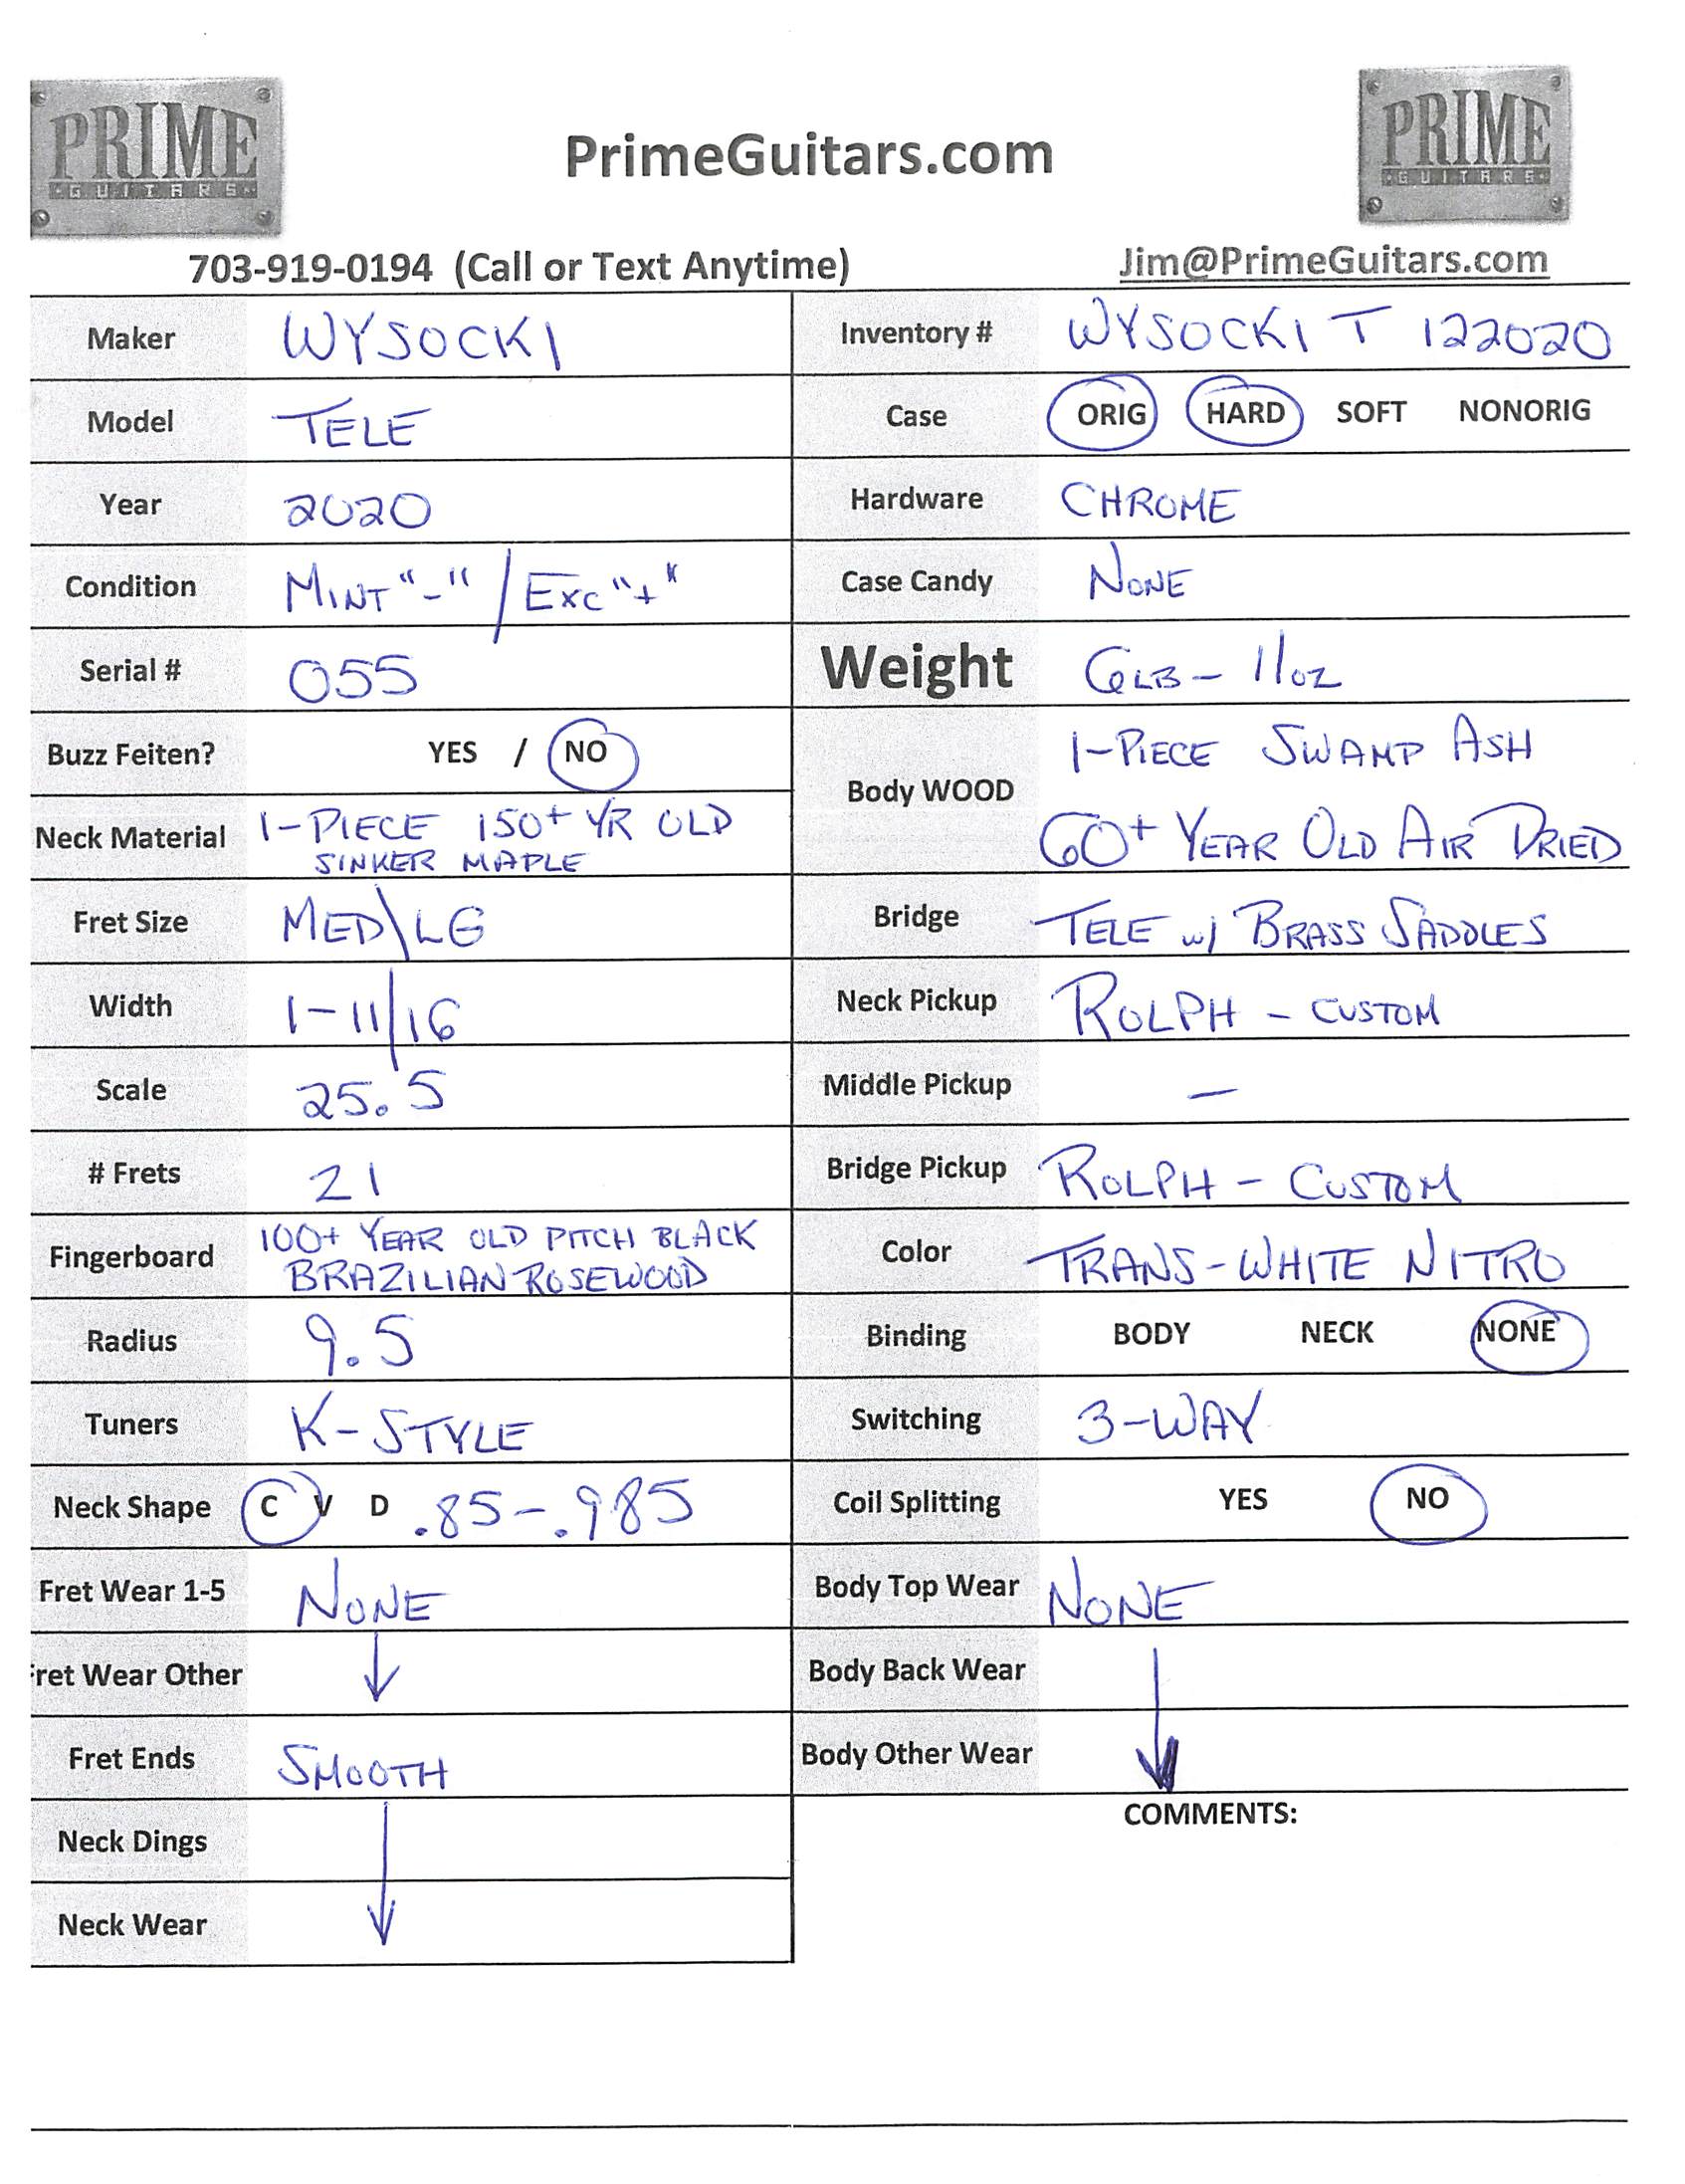 PRIME
GUITARS
PrimeGuitars.com
PRIME
GUITARS
703-919-0194 (Call or Text Anytime)
Jim@PrimeGuitars.com
Maker WYSOCKI
Model TELE
Year 2020
Condition MINT "-" / EXC "+"
Serial # 055
Buzz Feiten? YES / NO
Neck Material 1-PIECE 150+ YR OLD
SINKER MAPLE
Fret Size MED\LG
Width 1-11/16
Scale 25.5
# Frets 21
Fingerboard 100+ YEAR OLD PITCH BLACK
BRAZILIAN ROSEWOOD
Radius 9.5
Tuners K-STYLE
Neck Shape C V D .85-.985
Fret Wear 1-5 NONE
Fret Wear Other
Fret Ends SMOOTH
Neck Dings
Neck Wear
Inventory # WYSOCKI T 122020
Case ORIG HARD SOFT NONORIG
Hardware CHROME
Case Candy NONE
Weight 6LB- 11oz
Body WOOD 1-PIECE SWAMP ASH
60+ YEAR OLD AIR DRIED
Bridge TELE w/ BRASS SADDLES
Neck Pickup ROLPH - CUSTOM
Middle Pickup —
Bridge Pickup ROLPH - CUSTOM
Color TRANS-WHITE NITRO
Binding BODY NECK NONE
Switching 3-WAY
Coil Splitting YES NO
Body Top Wear NONE
Body Back Wear
Body Other Wear
COMMENTS: